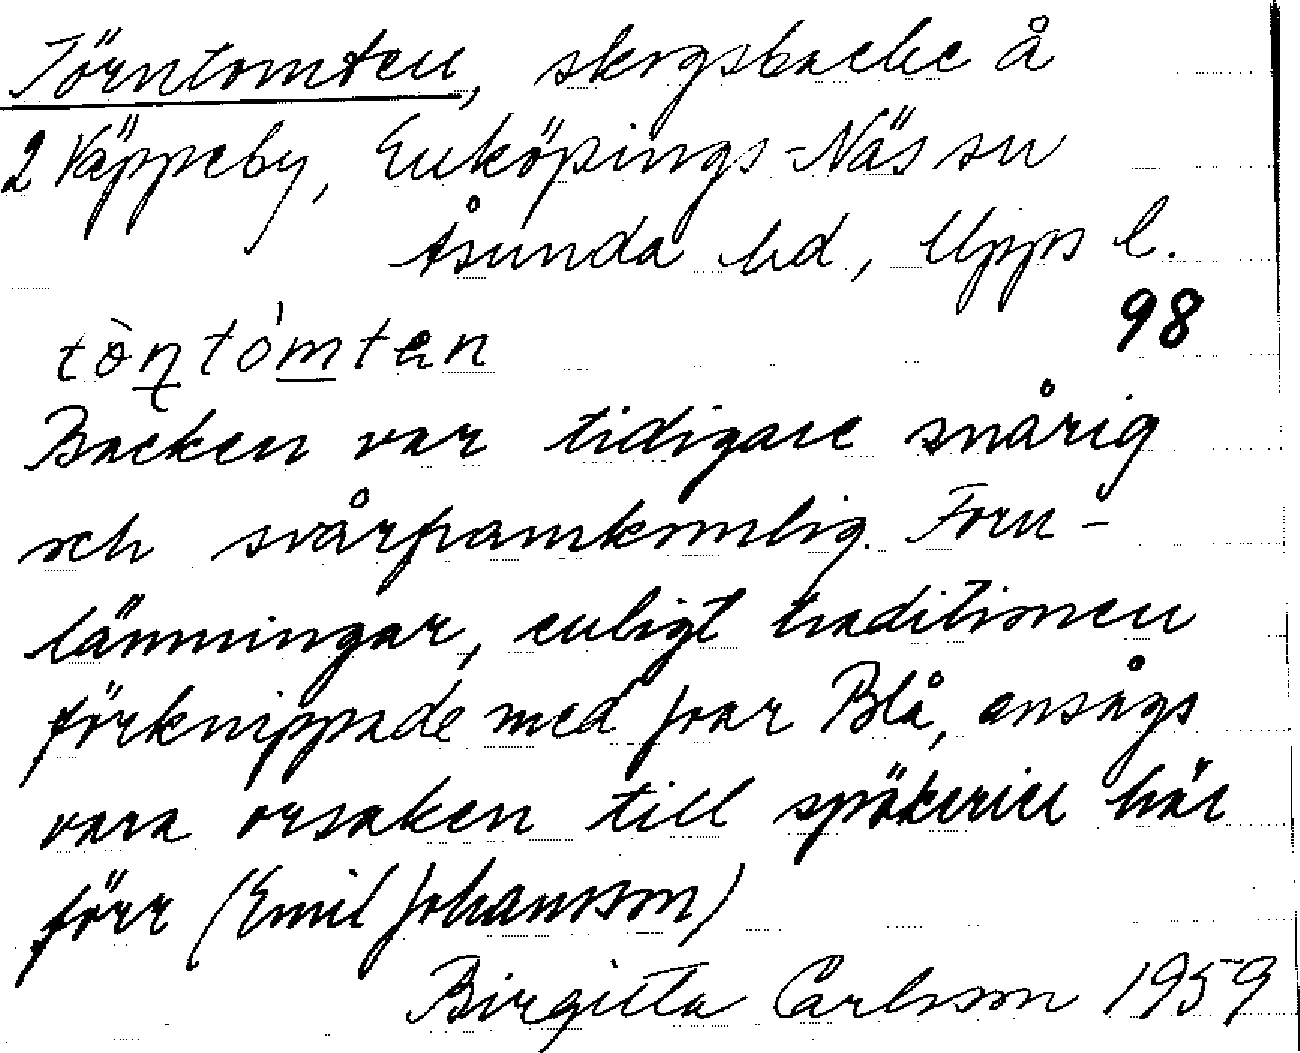 Törntomten, skogsbacke å
2 Väppeby, Enköpings-Näs sn
Åsunda hd, Upps l.
98
tö̀ṇtómten
Backen var tidigare snårig
och svårframkomlig. Forn-
lämningar, enligt traditionen
förknippade med Joar Blå, ansågs
vara orsaken till spökerier här
förr (Emil Johansson)
Birgitta Carlsson 1959